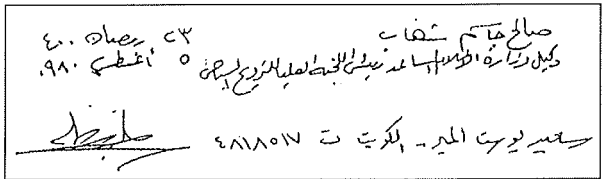 صالح جاسم شهاب ٢٣ رمضان ١٤٠٠
وكيل وزارة الإعلام المساعد رئيس اللجنة العليا للترويح السياحي ٥ أغسطس ١٩٨٠
الكويت ت ٤٨١٨٥١٧